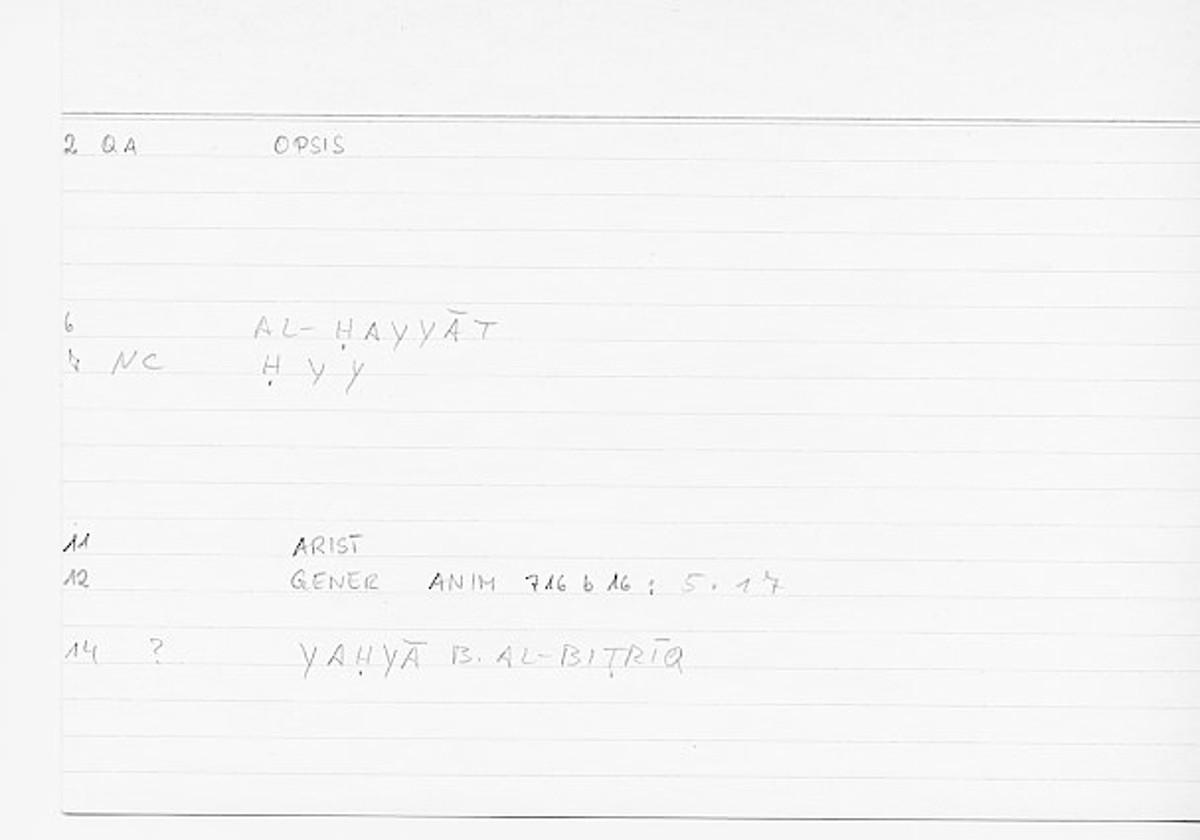 2 QA OPSIS
6 AL-ḤAYYĀT
7 NC Ḥ Y Y
11 ARIST
12 GENER ANIM 716 b 16 ; 5.17
14 ? YAḤYĀ B. AL-BIṬRĪQ